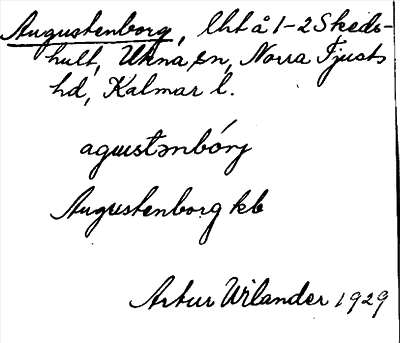 Augustenborg, lht å 1-2 Skeds-
hult, Ukna sn, Norra Tjusts
hd, Kalmar l.
agɯstənbórj
Augustenborg kb
Artur Wilander 1929